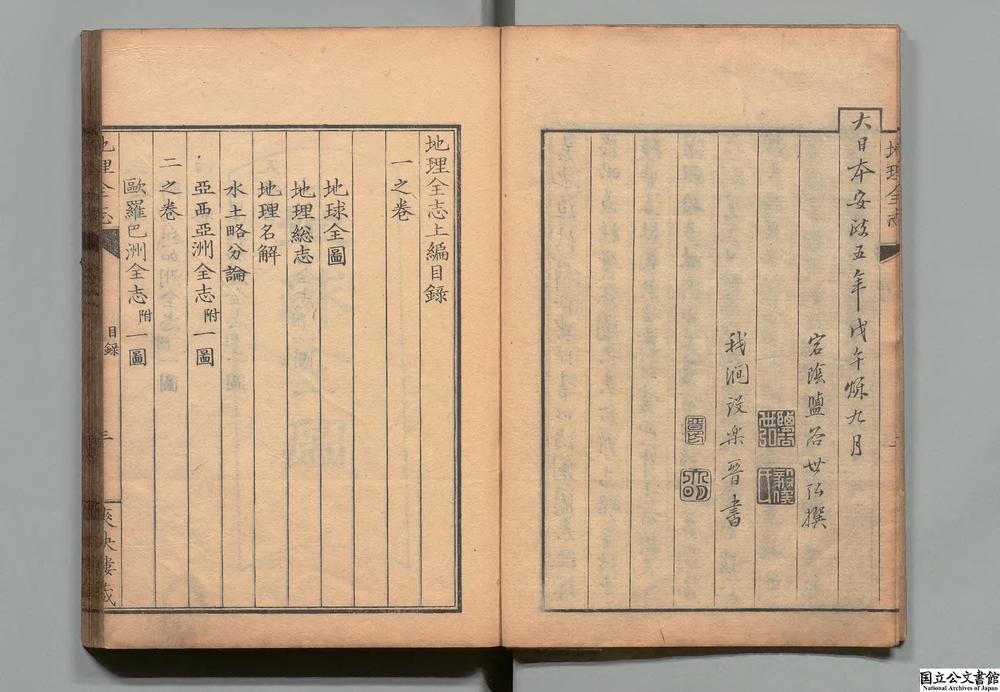 大日本安政五年戊午烁九月
宕陰鹽谷世弘撰
我澗設楽晉書
地理全志
地理全志上編目錄
一之卷
地球全圖
地理総志
地理名解
水土略分論
亞西亞洲全志附一圖
二之卷
歐羅巴洲全志附一圖
地理全志
目錄
爽快樓藏
国立公文書館
National Archives of Japan